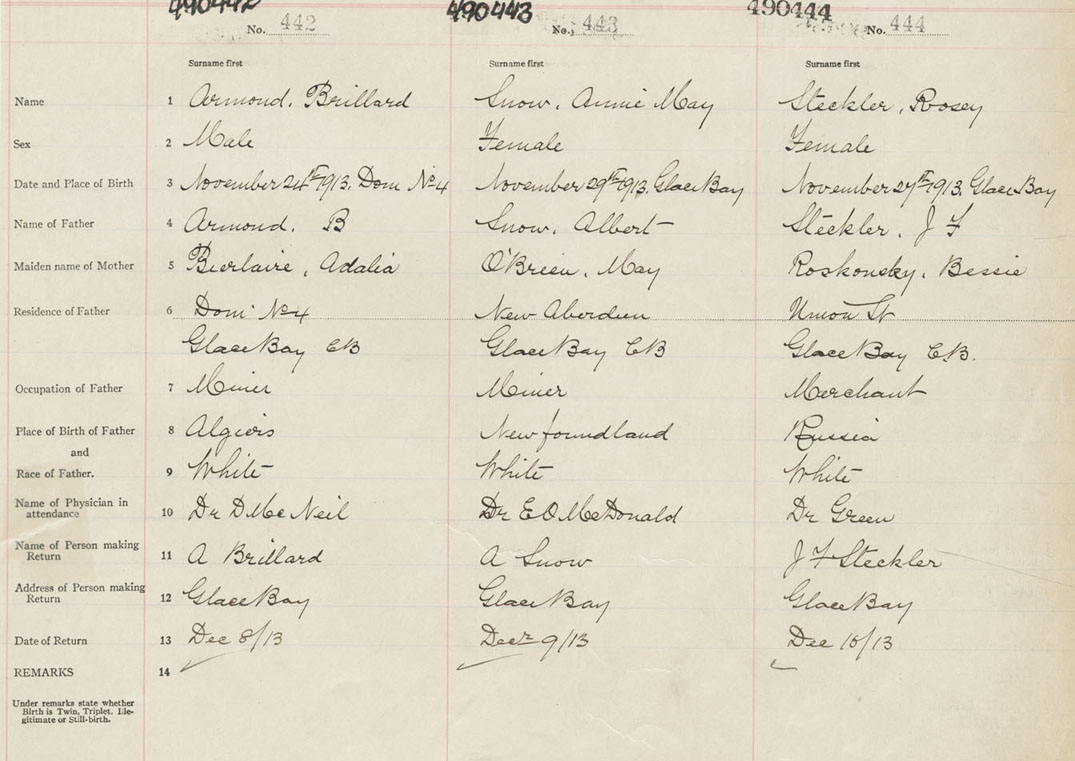 490442 490443 490444
No. 442 No. 443 No. 444
Surname first Surname first Surname first
Name 1 Armond, Brillard Snow, Annie May Steckler, Rosey
Sex 2 Male Female Female
Date and Place of Birth 3 November 24th 1913, Dom No 4 November 29th 1913, Glace Bay November 27th 1913, Glace Bay
Name of Father 4 Armond, B Snow, Albert Steckler, J F
Maiden name of Mother 5 Bierlaire, Adalia O'Brien, May Roskonsky, Bessie
Residence of Father 6 Dom No 4 New Aberdeen Union St
Glace Bay CB Glace Bay CB Glace Bay C.B.
Occupation of Father 7 Miner Miner Merchant
Place of Birth of Father 8 Algiers Newfoundland Russia
and
Race of Father. 9 White White White
Name of Physician in
attendance 10 Dr D McNeil Dr E O McDonald Dr Green
Name of Person making
Return 11 A Brillard A Snow J F Steckler
Address of Person making
Return 12 Glace Bay Glace Bay Glace Bay
Date of Return 13 Dec 8/13 Decr 9/13 Dec 10/13
REMARKS 14
Under remarks state whether
Birth is Twin, Triplet, Ille-
gitimate or Still-birth.